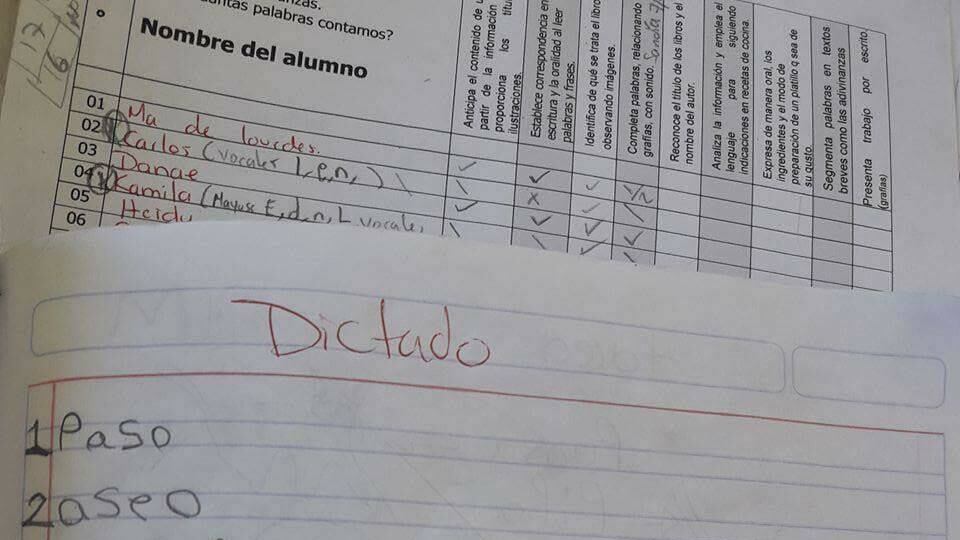 ntas palabras contamos?
Nombre del alumno
Anticipa el contenido de
partir de la información
proporciona los
ilustraciones.
Establece correspondencia en
escritura y la oralidad al leer
palabras y frases.
Identifica de qué se trata el libro
observando imágenes.
Completa palabras, relacionando
grafías, con sonido.
Reconoce el título de los libros y el
nombre del autor.
Analiza la información y emplea el
lenguaje para siguiendo
indicaciones en recetas de cocina.
Expresa de manera oral, los
ingredientes y el modo de
preparación de un platillo q sea de
su gusto.
Segmenta palabras en textos
breves como las adivinanzas
Presenta trabajo por escrito,
(grafías)
01 Ma de lourdes.
02 Carlos (vocales L,e,n,)
03 Danae
04 Kamila (Mayusc E,d,n,L vocales
05 Heidy
06
Dictado
1 Paso
2 aseo